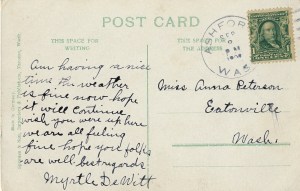 POST CARD
THIS SPACE FOR
WRITING
THIS SPACE FOR
THE ADDRESS
ASHFORD
SEP
WAS
Am having a nice
time the weather
is fine now hope
it will continue
wish you were up here
we are all feeling
fine hope you folks
are well best regards
Myrtle DeWitt
Miss Anna Peterson
Eatonville
Wash.